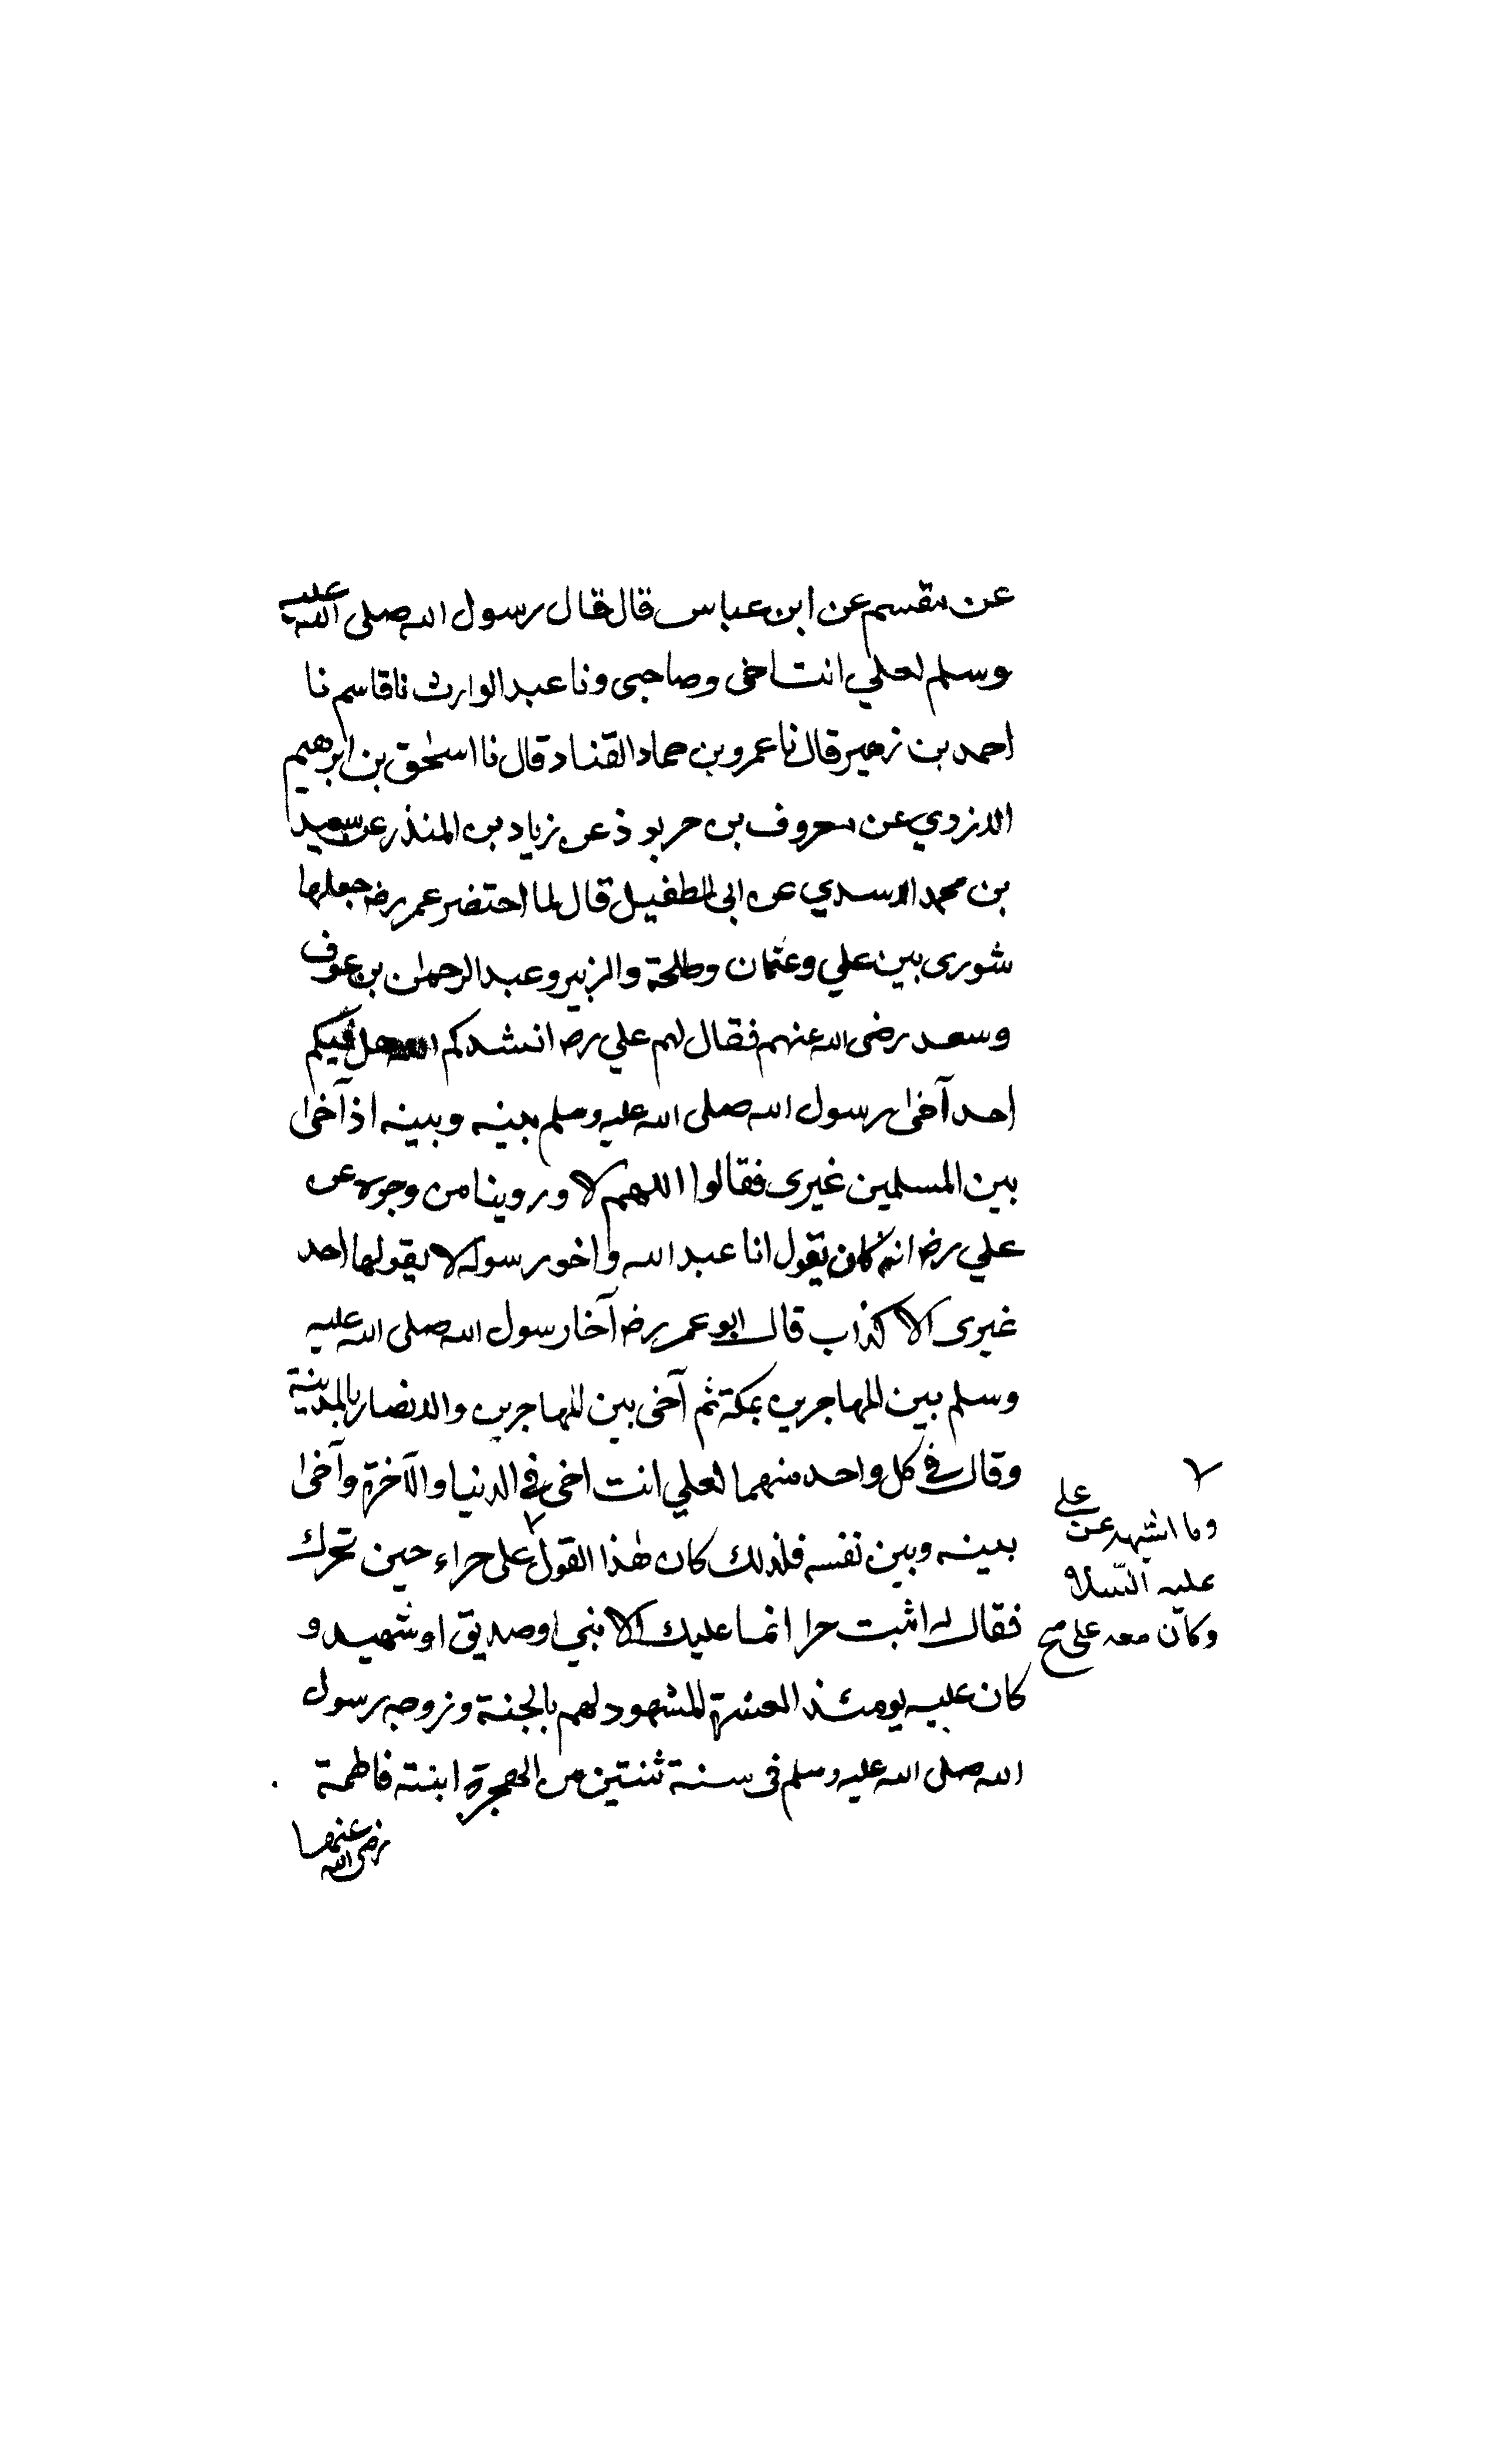 عن مقسم عن ابن عباس قال قال رسول الله صلى الله عليه
وسلم لعلي انت اخى وصاحبى ونا عبد الوارث نا قاسم نا
احمد بن زهير قال نا عمرو بن حماد القناد قال نا اسحٰق بن ابرهيم
الازدي عن معروف بن خربوذ عن زياد بن المنذر عن سعيد
بن محمد الاسدي عن ابى الطفيل قال لما احتضر عمر رضه جعلها
شورى بين علي وعثمان وطلحة والزبير وعبد الرحمٰن بن عوف
وسعد رضى الله عنهم فقال لهم علي رضه انشدكم الله هل فيكم
احد آخىٰ رسول الله صلى الله عليه وسلم بينه وبينه اذ آخىٰ
بين المسلمين غيرى فقالوا اللهم لا وروينا من وجوه عن
علي رضه انه كان يقول انا عبد الله واخو رسوله لا يقولها احد
غيرى الا كذاب قال ابو عمر رضه آخا رسول الله صلى الله عليه
وسلم بين المهاجرين بمكة ثم آخى بين المهاجرين والانصار بالمدينة
وقال في كل واحد منهما لعلي انت اخى في الدنيا والآخرة وآخىٰ
بينه وبين نفسه فلذلك كان هٰذا القول على حراء حين تحرك
فقال له اثبت حرا انما عليك الا نبي او صديق او شهيد و
كان عليه يومئذ العشرة المشهود لهم بالجنة وزوجه رسول
الله صلى الله عليه وسلم فى سنة ثنتين من الهجرة ابنته فاطمة
رضى الله عنها
وما اشبهه عن علي
عليه السلام
وكان معه على صح